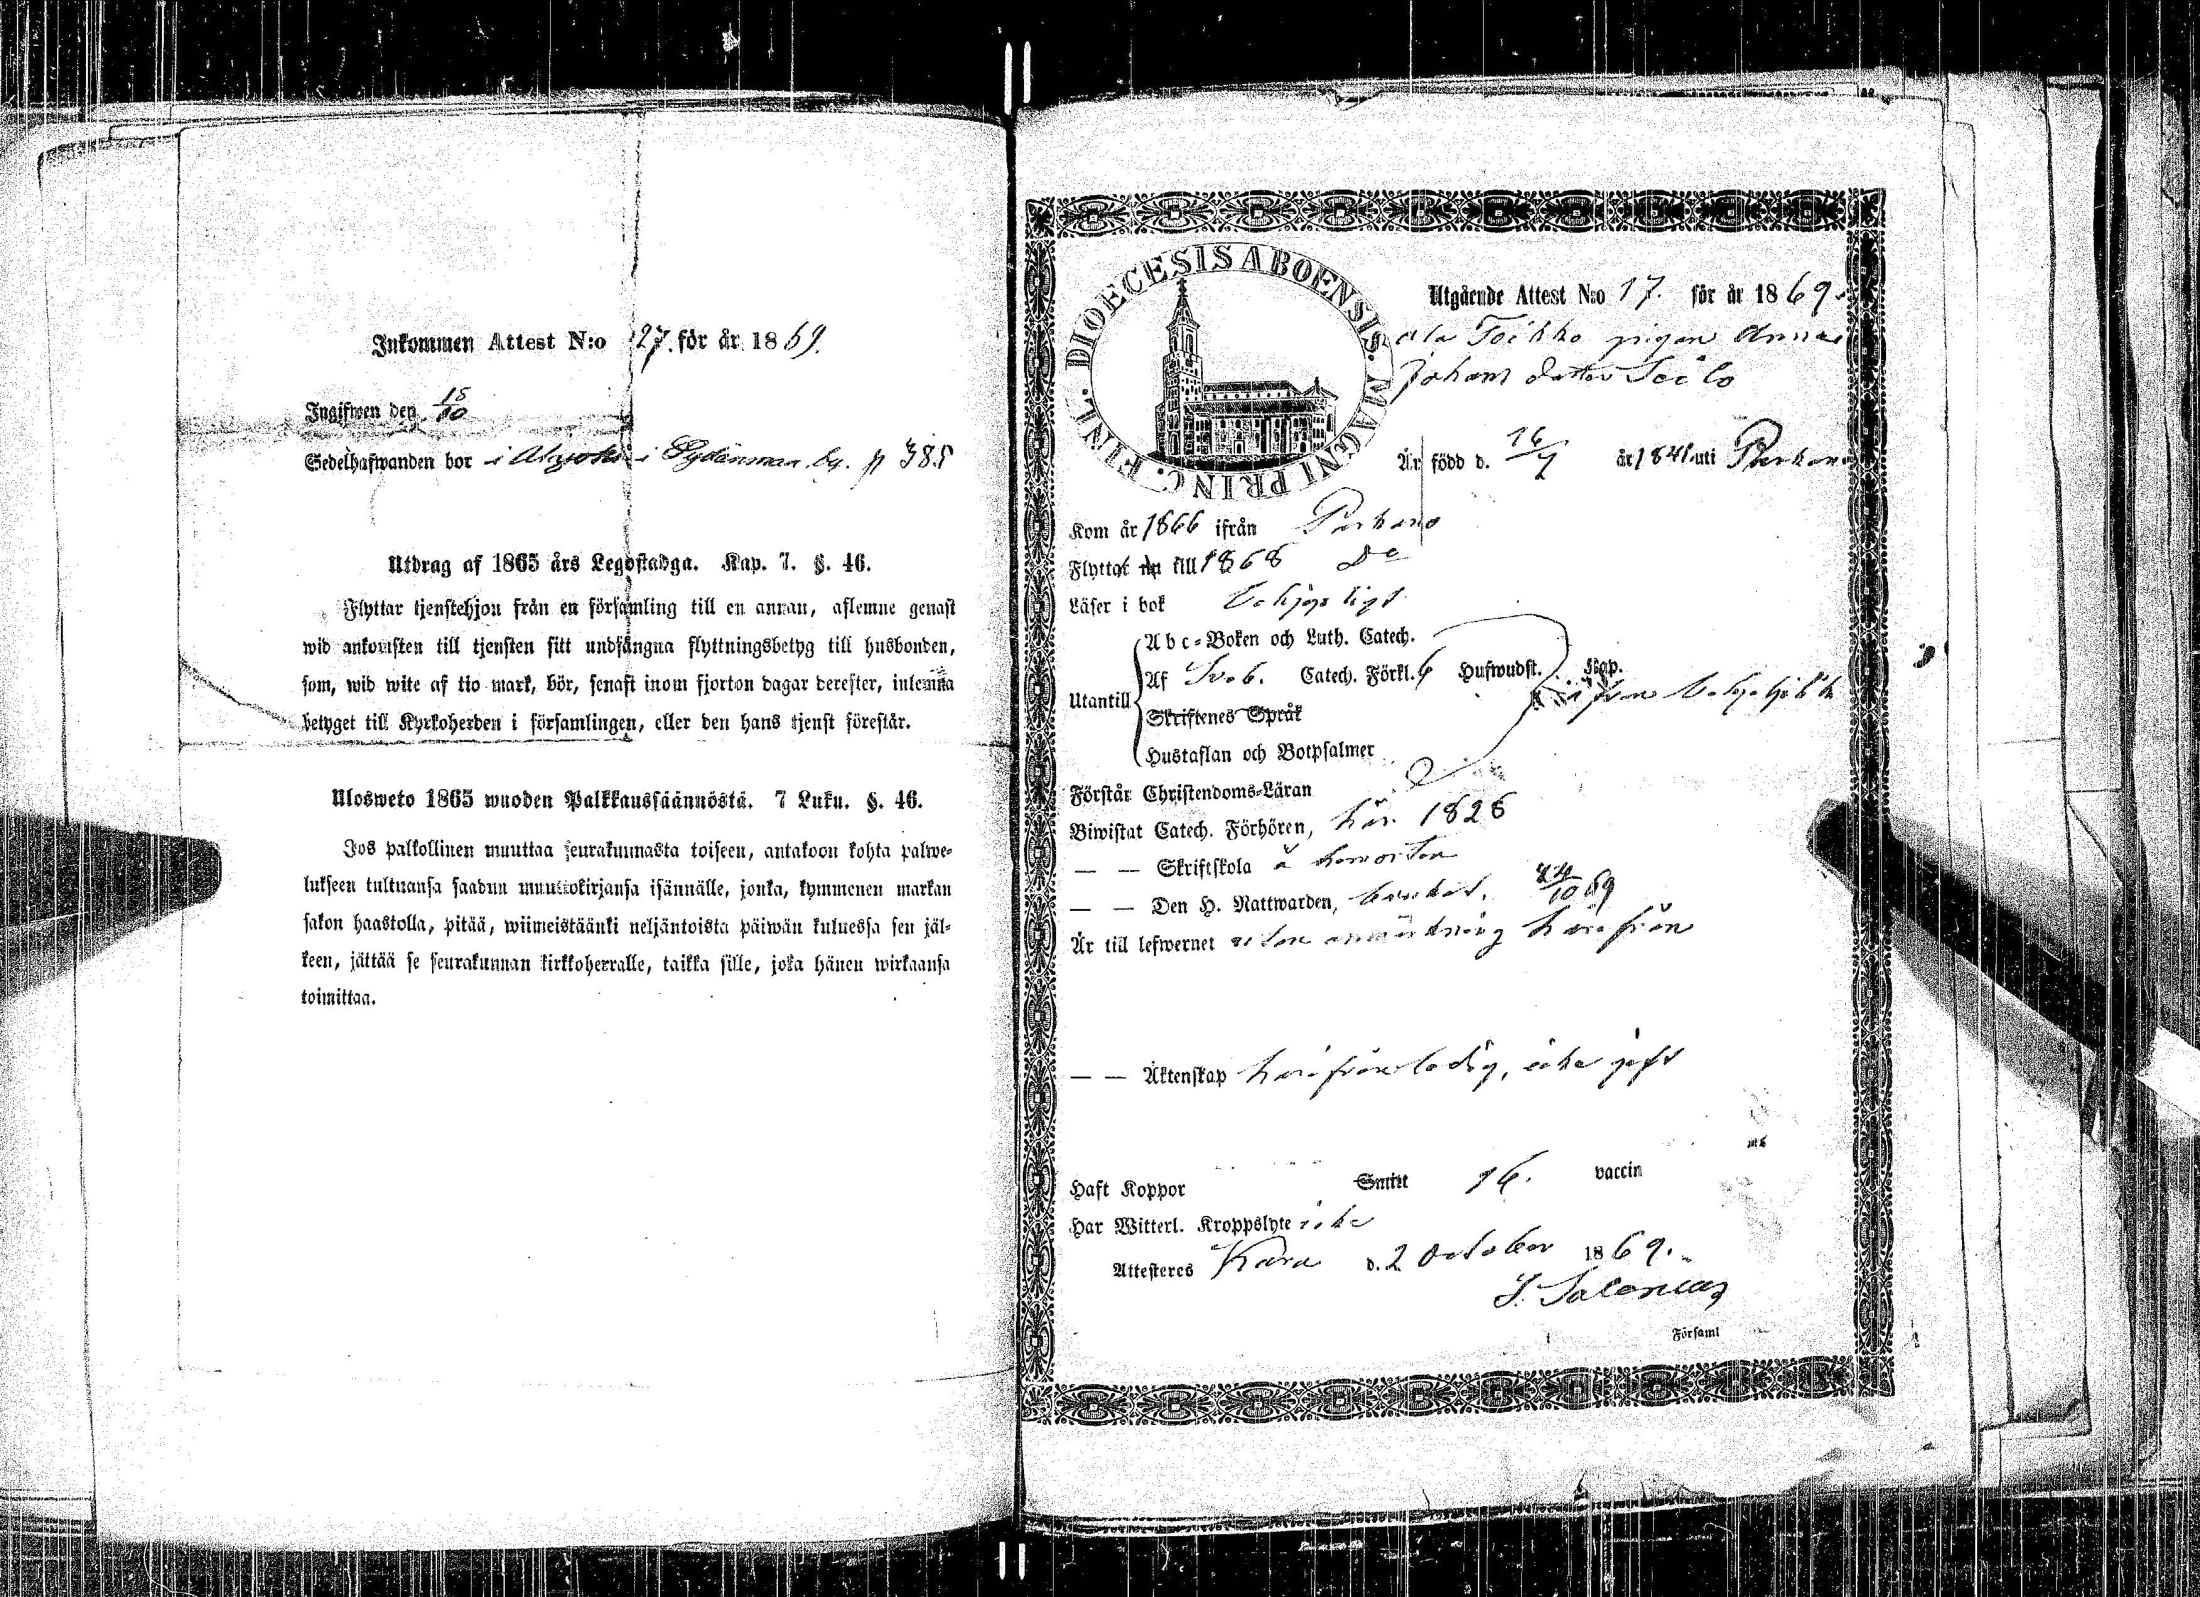 Inkommen Attest N:o 27. för år 1869.
Ingifwen den 15/10
Sedelhafwanden bor i i Sydänmaa by. p 385
Utdrag af 1865 års Legostadga. Kap. 7. §. 46.
Flyttar tjenstehjon från en församling till en annan, aflemne genast
wid ankomsten till tjensten sitt undfångna flyttningsbetyg till husbonden,
som, wid wite af tio mark, bör, senast inom fjorton dagar derefter, inlemna
betyget till Kyrkoherden i församlingen, eller den hans tjenst förestår.
Ulosweto 1865 wuoden Palkkaussäännöstä. 7 Luku. §. 46.
Jos palkollinen muuttaa seurakunnasta toiseen, antakoon kohta palwe-
lukseen tultuansa saadun muuttokirjansa isännälle, jonka, kymmenen markan
sakon haastolla, pitää, wiimeistäänki neljäntoista päiwän kuluessa sen jäl-
keen, jättää se seurakunnan kirkkoherralle, taikka sille, joka hänen wirkaansa
toimittaa.
DIOECESIS ABOENSIS. MAGNI PRINC. FINL.
Utgående Attest N:o 17. för år 1869.
pigan Anna
Johans dotter
Är född d. 16/7 år 1841 uti Parkano
Kom år 1866 ifrån Parkano
Flyttat nu till 1868 Do
Läser i bok
Utantill
Abc-Boken och Luth. Catech.
Af Sveb. Catech. Förkl. 6 Hufwudst. Kap.
Skriftenes Språk
Hustaflan och Botpsalmer
Förstår Christendoms-Läran
Biwistat Catech. Förhören, här. 1868
— — Skriftskola å
— — Den H. Nattwarden, 10 69
Är till lefwernet utan anmärkning härifrån
— — Äktenskap härifrån ledig, icke gift
Haft Koppor Smitt 16. vaccin
Har Witterl. Kroppslyte icke
Attesteres d. 2 October 1869.
Församl